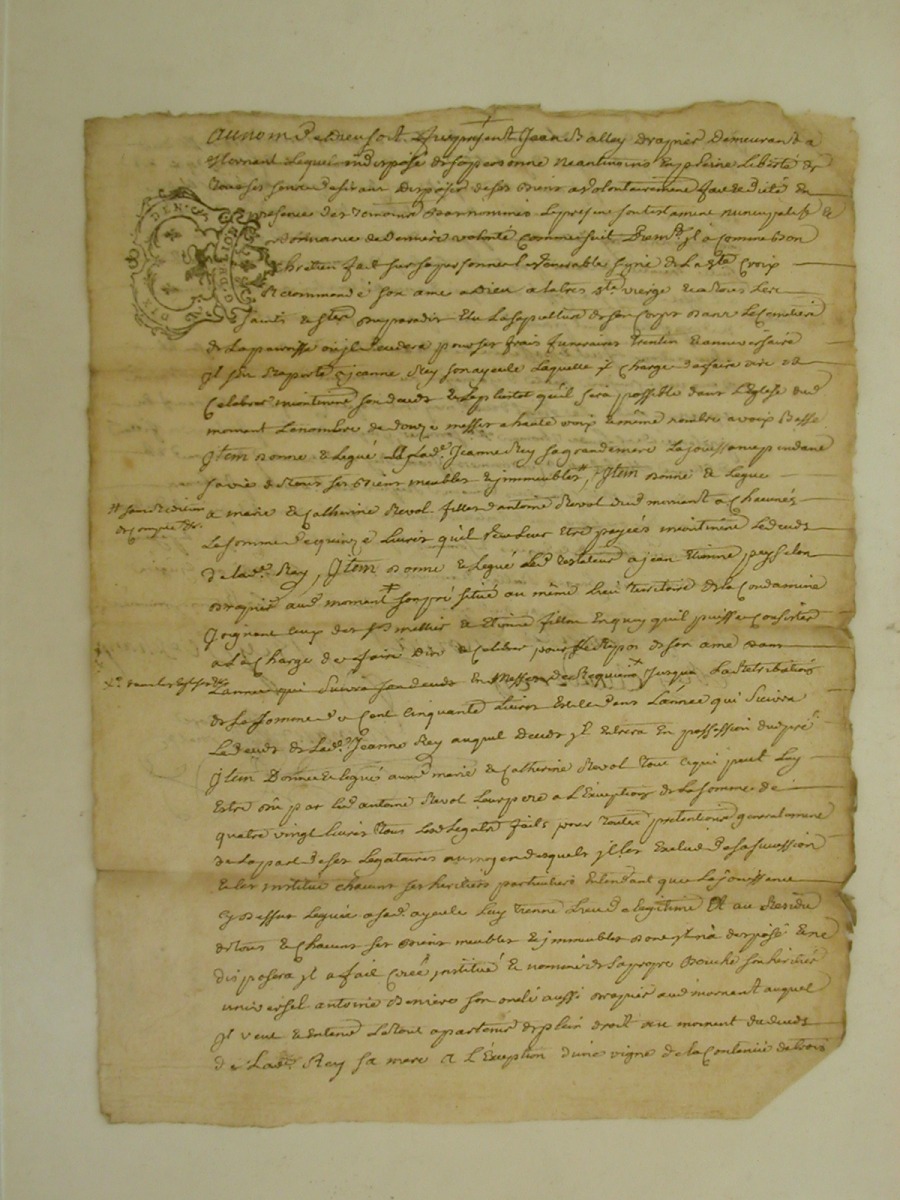 au nom de dieu soit. fut present Jean Balley Drapier Demeurant a
Mornant Lequel indisposé de sa personne Neantmoins En pleine Liberté de
tous ses sens Desirant Disposer de ses Biens a volontairement fait & dicté En
presence des Temoins Bas nommés Le present son testament nuncupatif &
ordonnance de Derniere volonté Comme suit Premt. Jl a Comme bon
Chretien fait sur sa personne le Venerable signe de La ste. Croix
Recommandé son ame a Dieu a la tres ste. vierge & a tous Les
saints & stes. du paradis Elu La sepulture de son Corps Dans Le Cimetiere
de La paroisse ou jl Decedera pour ses frais funeraires trentin & anniversaire
Jl s'en Raporte a jeanne Rey son ayeule Laquelle jl Charge de faire dire &
Celebrer son deceds & Le plustot qu'il sera possible dans L'Eglise dud
mornant Le nombre de douze messes a haute voix & même nombre a voix Basse
Jtem Donne & Legue a Lade. Jeanne Rey sa grandmere La jouissance pendant
sa vie de tous ses Biens meubles & jmmeubles, Jtem Donne & Legue
a marie & Catherine Revol filles d'antoine Revol dud mornant a Chacune
La somme de quinze Livres qu'il veut leur Etre payées Le deceds
de lade. Rey, Jtem Donne & Legue Led testateur a jean Etienne peysselon
Drapier aud mornant son pré situé au même Lieu territoire de la Condamine
Joignant ceux des srs mellier & Etienne fillon En quoy qu'il puisse Consister
a La Charge de faire Dire & Celebrer pour Le Repos de son ame Dans
L'année qui suivra son deceds En Messes de Requiem Jusqua La Retribution
de La somme de Cent Cinquante Livres & celle Dans L'année qui suivra
Le deceds de Lade. Jeanne Rey auquel deceds jl Entrera En possession dud pré
Jtem Donne & legue auxd marie & Catherine Revol tout ce qui peut Luy
Estre Du par led antoine Revol Leur pere a L'Exception de La somme de
quatre vingt Livres tous Lesd Legats faits pour toutes pretentions generalement
de La part de ses Legataires au moyen desquels jl les Exclud de sa succession
& les institue Chacuns ses heritiers particuliers Entendant que La jouissance
Cy Dessus Leguée a sad. ayeule Luy tienne Lieu de Legitime Et au Residu
de tous & Chacuns ses Biens meubles & jmmeubles Dont jl n'a disposé & ne
disposera jl a fait Créé institué & nommé de sa propre Bouche son heritier
universel antoine Beniere son oncle aussi Drapier aud mornant auquel
Jl veut & Entend Le tout apartenir de plein droit au moment du deceds
de Lade. Rey sa mere a L'Exception d'une vigne de la Contenue de trois